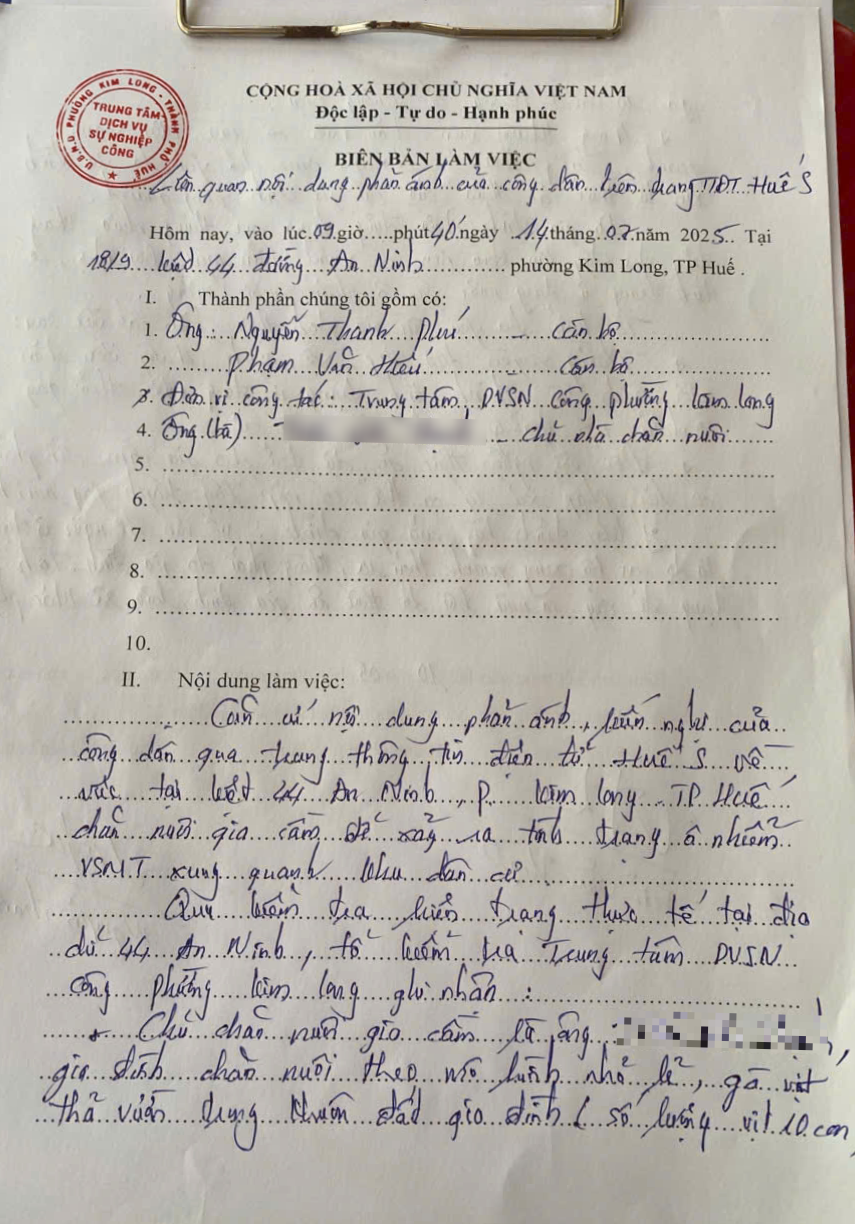 U.B.N.D PHƯỜNG KIM LONG - THÀNH PHỐ HUẾ
TRUNG TÂM
DỊCH VỤ
SỰ NGHIỆP
CÔNG
CỘNG HOÀ XÃ HỘI CHỦ NGHĨA VIỆT NAM
Độc lập - Tự do - Hạnh phúc
BIÊN BẢN LÀM VIỆC
Liên quan nội dung phản ánh của công dân trên trang TTĐT Huế S
Hôm nay, vào lúc 09 giờ.....phút 40 ngày 14 tháng 07 năm 2025. Tại
18/9 kiệt 44 đường An Ninh ............ phường Kim Long, TP Huế .
I. Thành phần chúng tôi gồm có:
1. Ông: Nguyễn Thanh Phú - Cán bộ
2. Phạm Văn Hiếu - Cán bộ
3. Đơn vị công tác: Trung tâm DVSN công phường Kim Long
4. Ông (bà) - chủ nhà chăn nuôi
5.
6.
7.
8.
9.
10.
II. Nội dung làm việc:
Căn cứ nội dung phản ánh, kiến nghị của
công dân qua trang thông tin điện tử Huế S về
việc tại kiệt 44 An Ninh, P. Kim Long TP Huế
chăn nuôi gia cầm để xảy ra tình trạng ô nhiễm
VSMT xung quanh khu dân cư
Qua kiểm tra hiện trạng thực tế tại địa
chỉ 44 An Ninh, tổ kiểm tra Trung tâm DVSN
công phường Kim Long ghi nhận :
Chủ chăn nuôi gia cầm là ông
gia đình chăn nuôi theo mô hình nhỏ lẻ, gà vịt
thả vườn trong khuôn đất gia đình ( số lượng vịt 10 con,